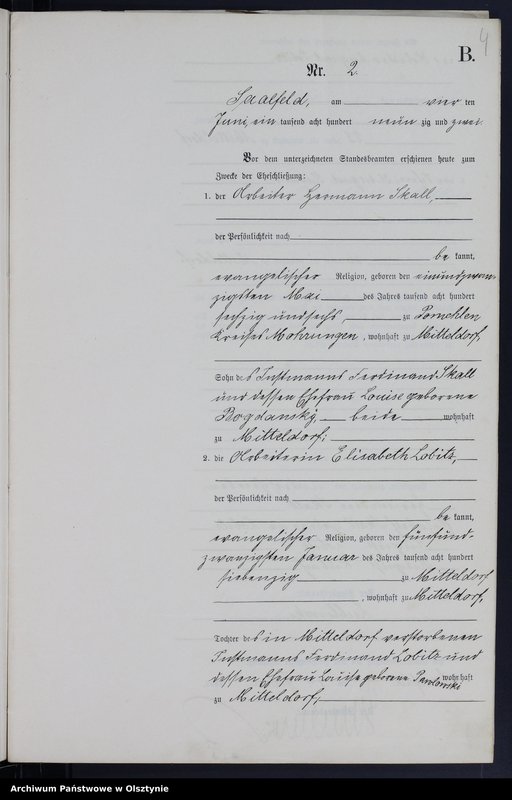 4
B.
Nr. 2.
Saalfeld, am vier ten
Juni, ein tausend acht hundert neun zig und zwei.
Vor dem unterzeichneten Standesbeamten erschienen heute zum
Zwecke der Eheschließung:
1. der Arbeiter Hermann Skall,
der Persönlichkeit nach
be kannt,
evangelischer Religion, geboren den einundzwan-
zigsten Mai des Jahres tausend acht hundert
sechzig und sechs, zu Ponehlen
Kreises Mohrungen, wohnhaft zu Mitteldorf,
Sohn des Instmanns Ferdinand Skall
und dessen Ehefrau Louise geborene
Bogdansky, beide wohnhaft
zu Mitteldorf;
2. die Arbeiterin Elisabeth Lobitz,
der Persönlichkeit nach
be kannt,
evangelischer Religion, geboren den fünfund-
zwanzigsten Januar des Jahres tausend acht hundert
siebenzig zu Mitteldorf
, wohnhaft zu Mitteldorf,
Tochter des in Mitteldorf verstorbenen
Instmanns Ferdinand Lobitz und
dessen Ehefrau Louise geborene Pawlowski wohnhaft
zu Mitteldorf,
Archiwum Państwowe w Olsztynie